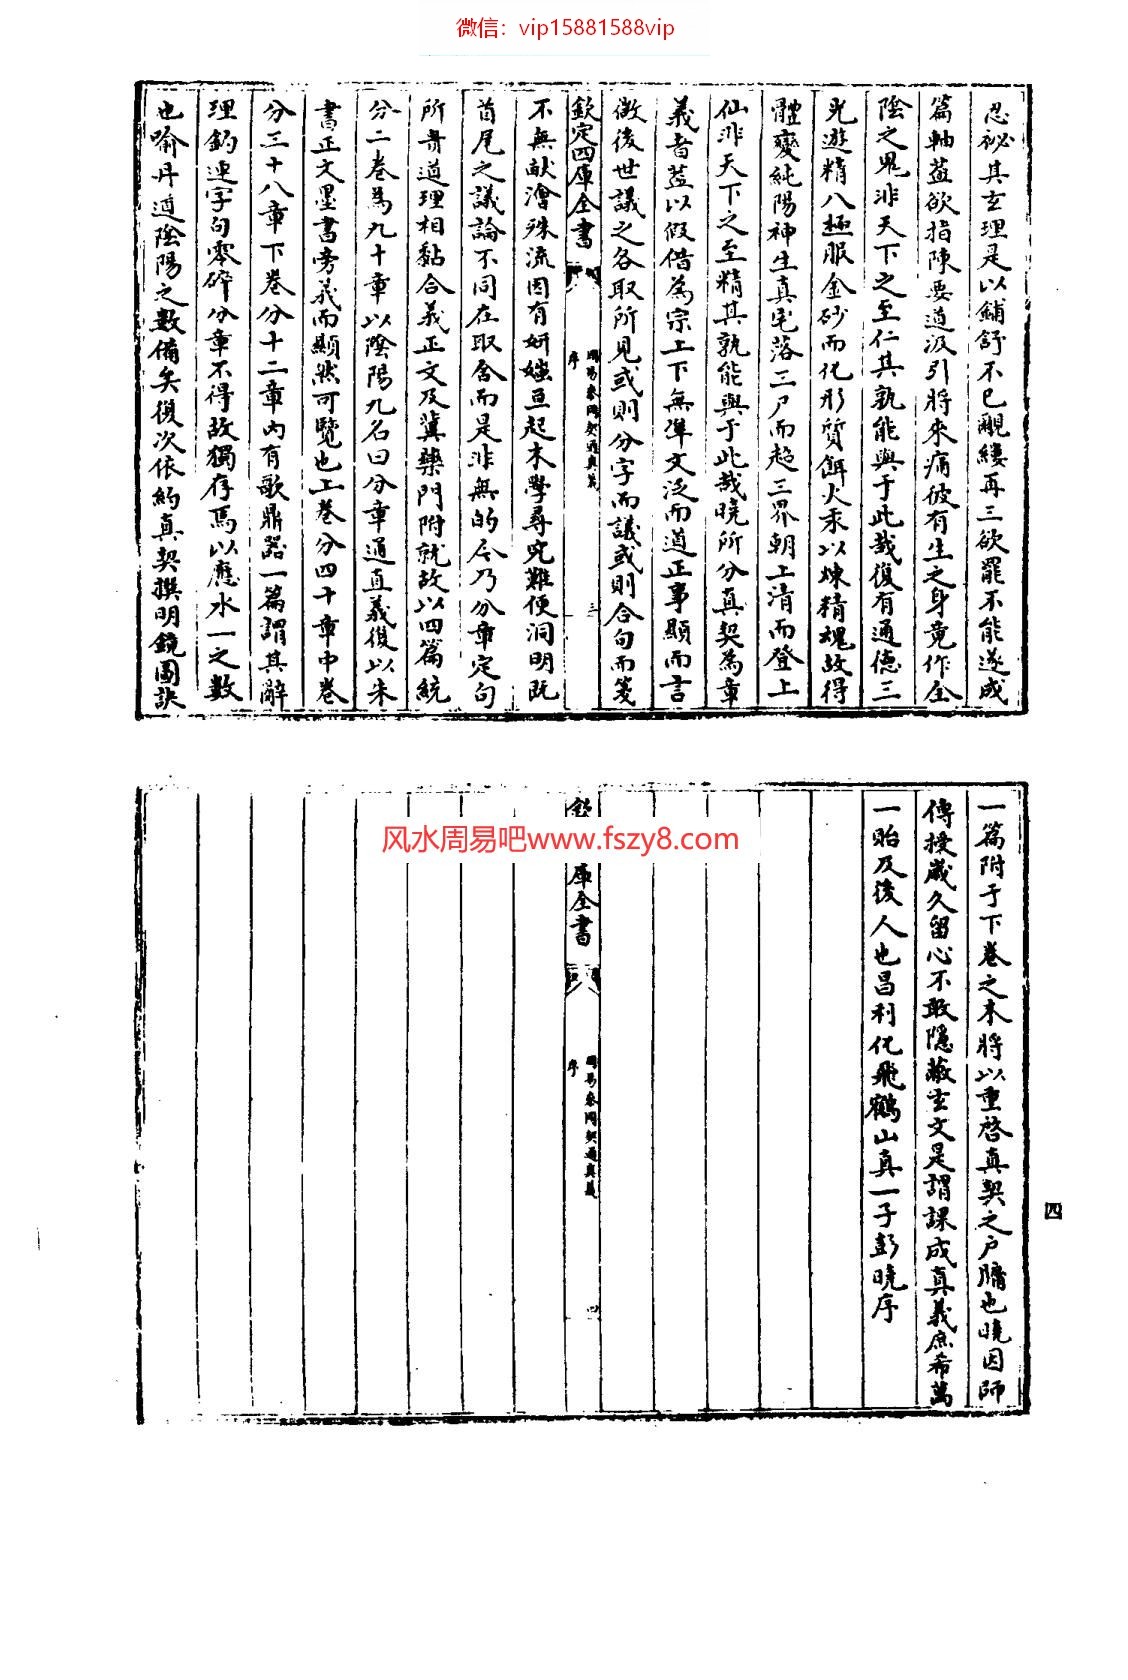 微信：vip15881588vip
忍祕其玄理是以鋪舒不已覼縷再三欲罷不能遂成
篇軸蓋欲指陳要道汲引將來痛彼有生之身竟作全
陰之鬼非天下之至仁其孰能與于此哉復有通德三
光遊精八極服金砂而化形質餌火汞以煉精魂故得
體變純陽神生真宅落三尸而超三界朝上清而登上
仙非天下之至精其孰能與于此哉曉所分真契為章
義者蓋以假借為宗上下無準文泛而道正事顯而言
微後世議之各取所見或則分字而議或則合句而箋
欽定四庫全書
周易參同契通真義
序
三
不無畎澮殊流因有妍媸互起末學尋究難便洞明既
首尾之議論不同在取舍而是非無的今乃分章定句
所貴道理相黏合義正文及冀藥門附就故以四篇統
分三卷為九十章以陰陽九名曰分章通真義復以朱
書正文墨書旁義而顯然可覽也上卷分四十章中卷
分三十八章下卷分十二章內有歌鼎器一篇謂其辭
理鈎連字句零碎分章不得故獨存焉以應水一之數
也喻丹道陰陽之數備矣復次依約真契撰明鏡圖訣
一篇附于下卷之末將以重啓真契之戶牖也曉因師
傳授歲久留心不敢隱蔽玄文是謂課成真義庶希萬
一貽及後人也昌利化飛鶴山真一子彭曉序
欽 庫全書
周易參同契通真義
序
四
風水周易吧www.fszy8.com
四